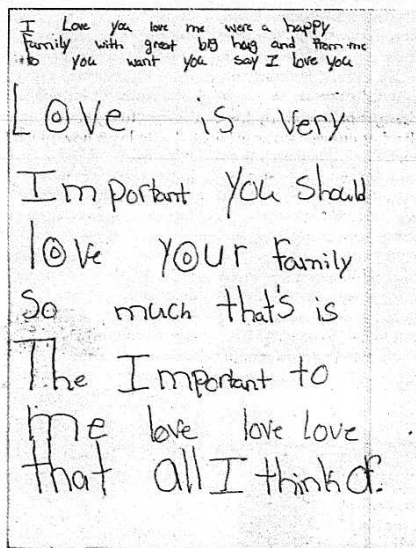 I Love you love me were a happy
family with great big hug and from me
to you want you say I love you
Love is very
Important you should
love your family
So much that's is
The Important to
me love love love
that all I think of.